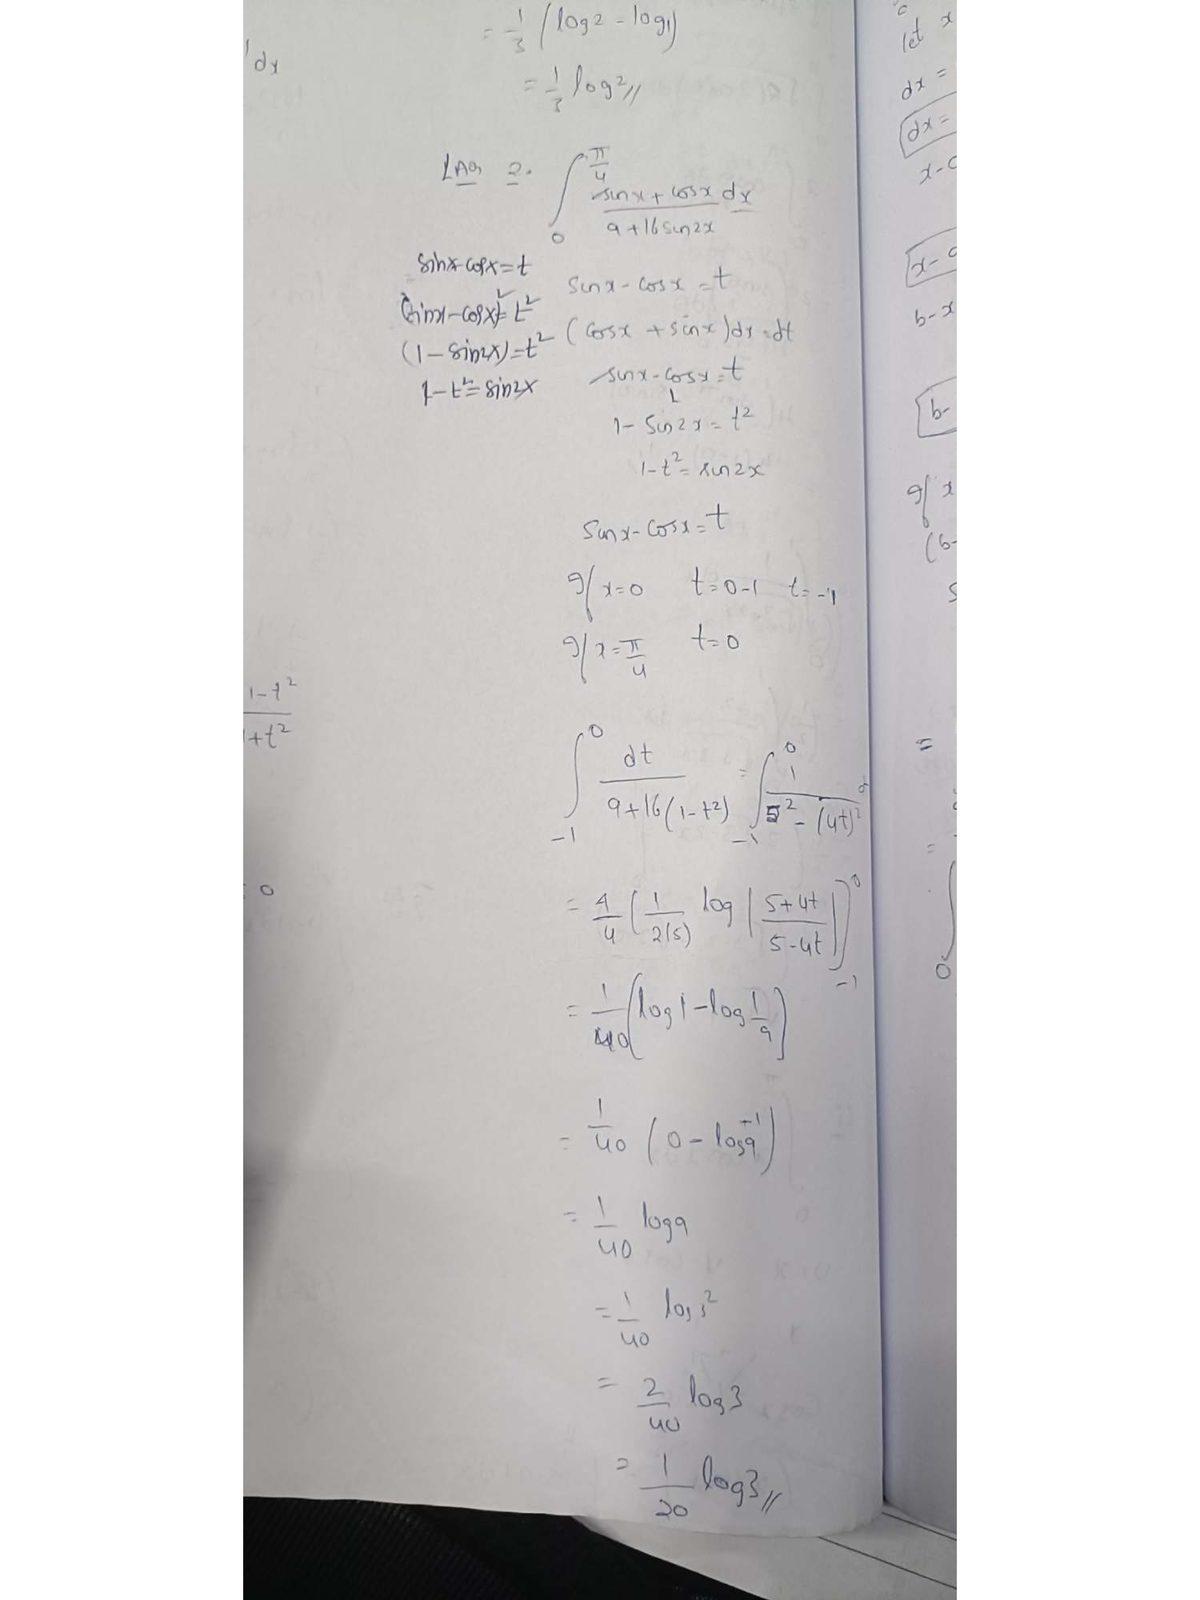 = 1/3 (log2 - log1)
dx
= 1/3 log2 //
LAQ 2. ∫₀^(π/4) (sinx + cosx dx)/(9+16sin2x)
sinx-cosx=t
(sinx-cosx)²=t²
(1-sin2x)=t²
1-t²=sin2x
sinx-cosx=t
(cosx + sinx)dx=dt
sinx-cosx=t
1-sin2x=t²
1-t²=sin2x
sinx-cosx=t
If x=0 t=0-1 t=-1
If x=π/4 t=0
1-t²
1+t²
∫₋₁^0 dt/(9+16(1-t²)) = ∫₋₁^0 1/(5²-(4t)²)
0
= 4/4 (1/2(5) log|(5+4t)/(5-4t)|]₋₁^0
= 1/40 [log1-log 1/9]
= 1/40 (0-log9⁻¹)
= 1/40 log9
= 1/40 log3²
= 2/40 log3
= 1/20 log3 //
let x
dx =
dx =
x-a
x-a
b-x
b-
If x
(b-
=
=
∫₀